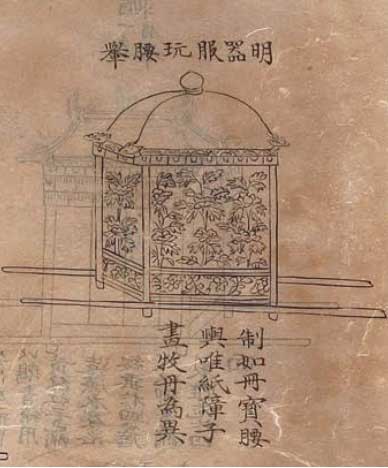 明器服玩腰轝
制如冊寶腰
輿唯紙障子
畫牧丹為異